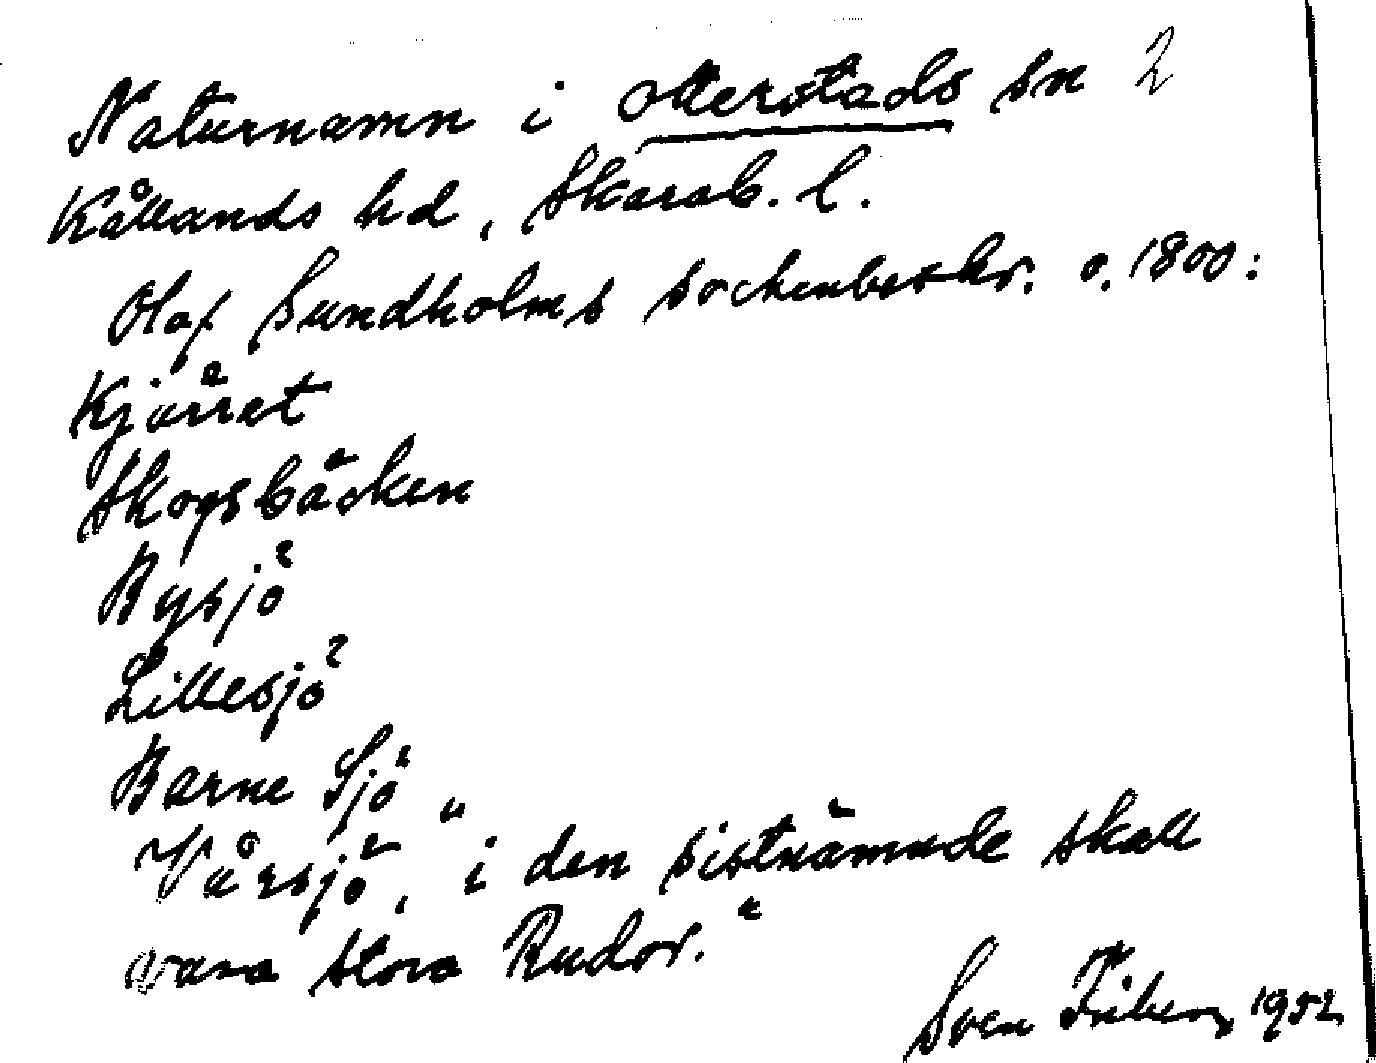 Naturnamn i Otterstads sn 2
Kållands hd, Skarab. l.
Olof Sundholms sockenbeskr. o. 1800:
Kjärret
Skogsbäcken
Bysjö
Lillesjö
Barne Sjö
Vårsjö, "i den sistnämnde skall
vara stora Rudor."
Sven Friberg 1952